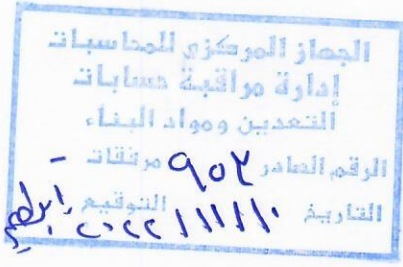 الجهاز المركزى للمحاسبات
إدارة مراقبة حسابات
التعدين ومواد البناء
الرقم الصادر ٩٥٣ مرفقات -
التاريخ ٢٠٢٢/١١/١٠ التوقيع إبراهيم